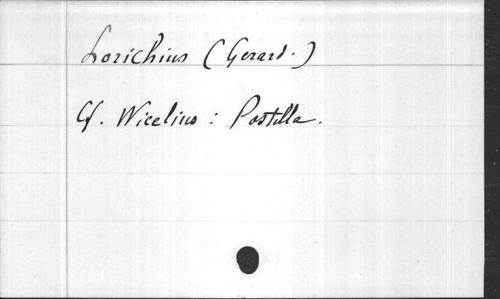 Lorichius (Gerard.)
Cf. Wicelius : Postilla.